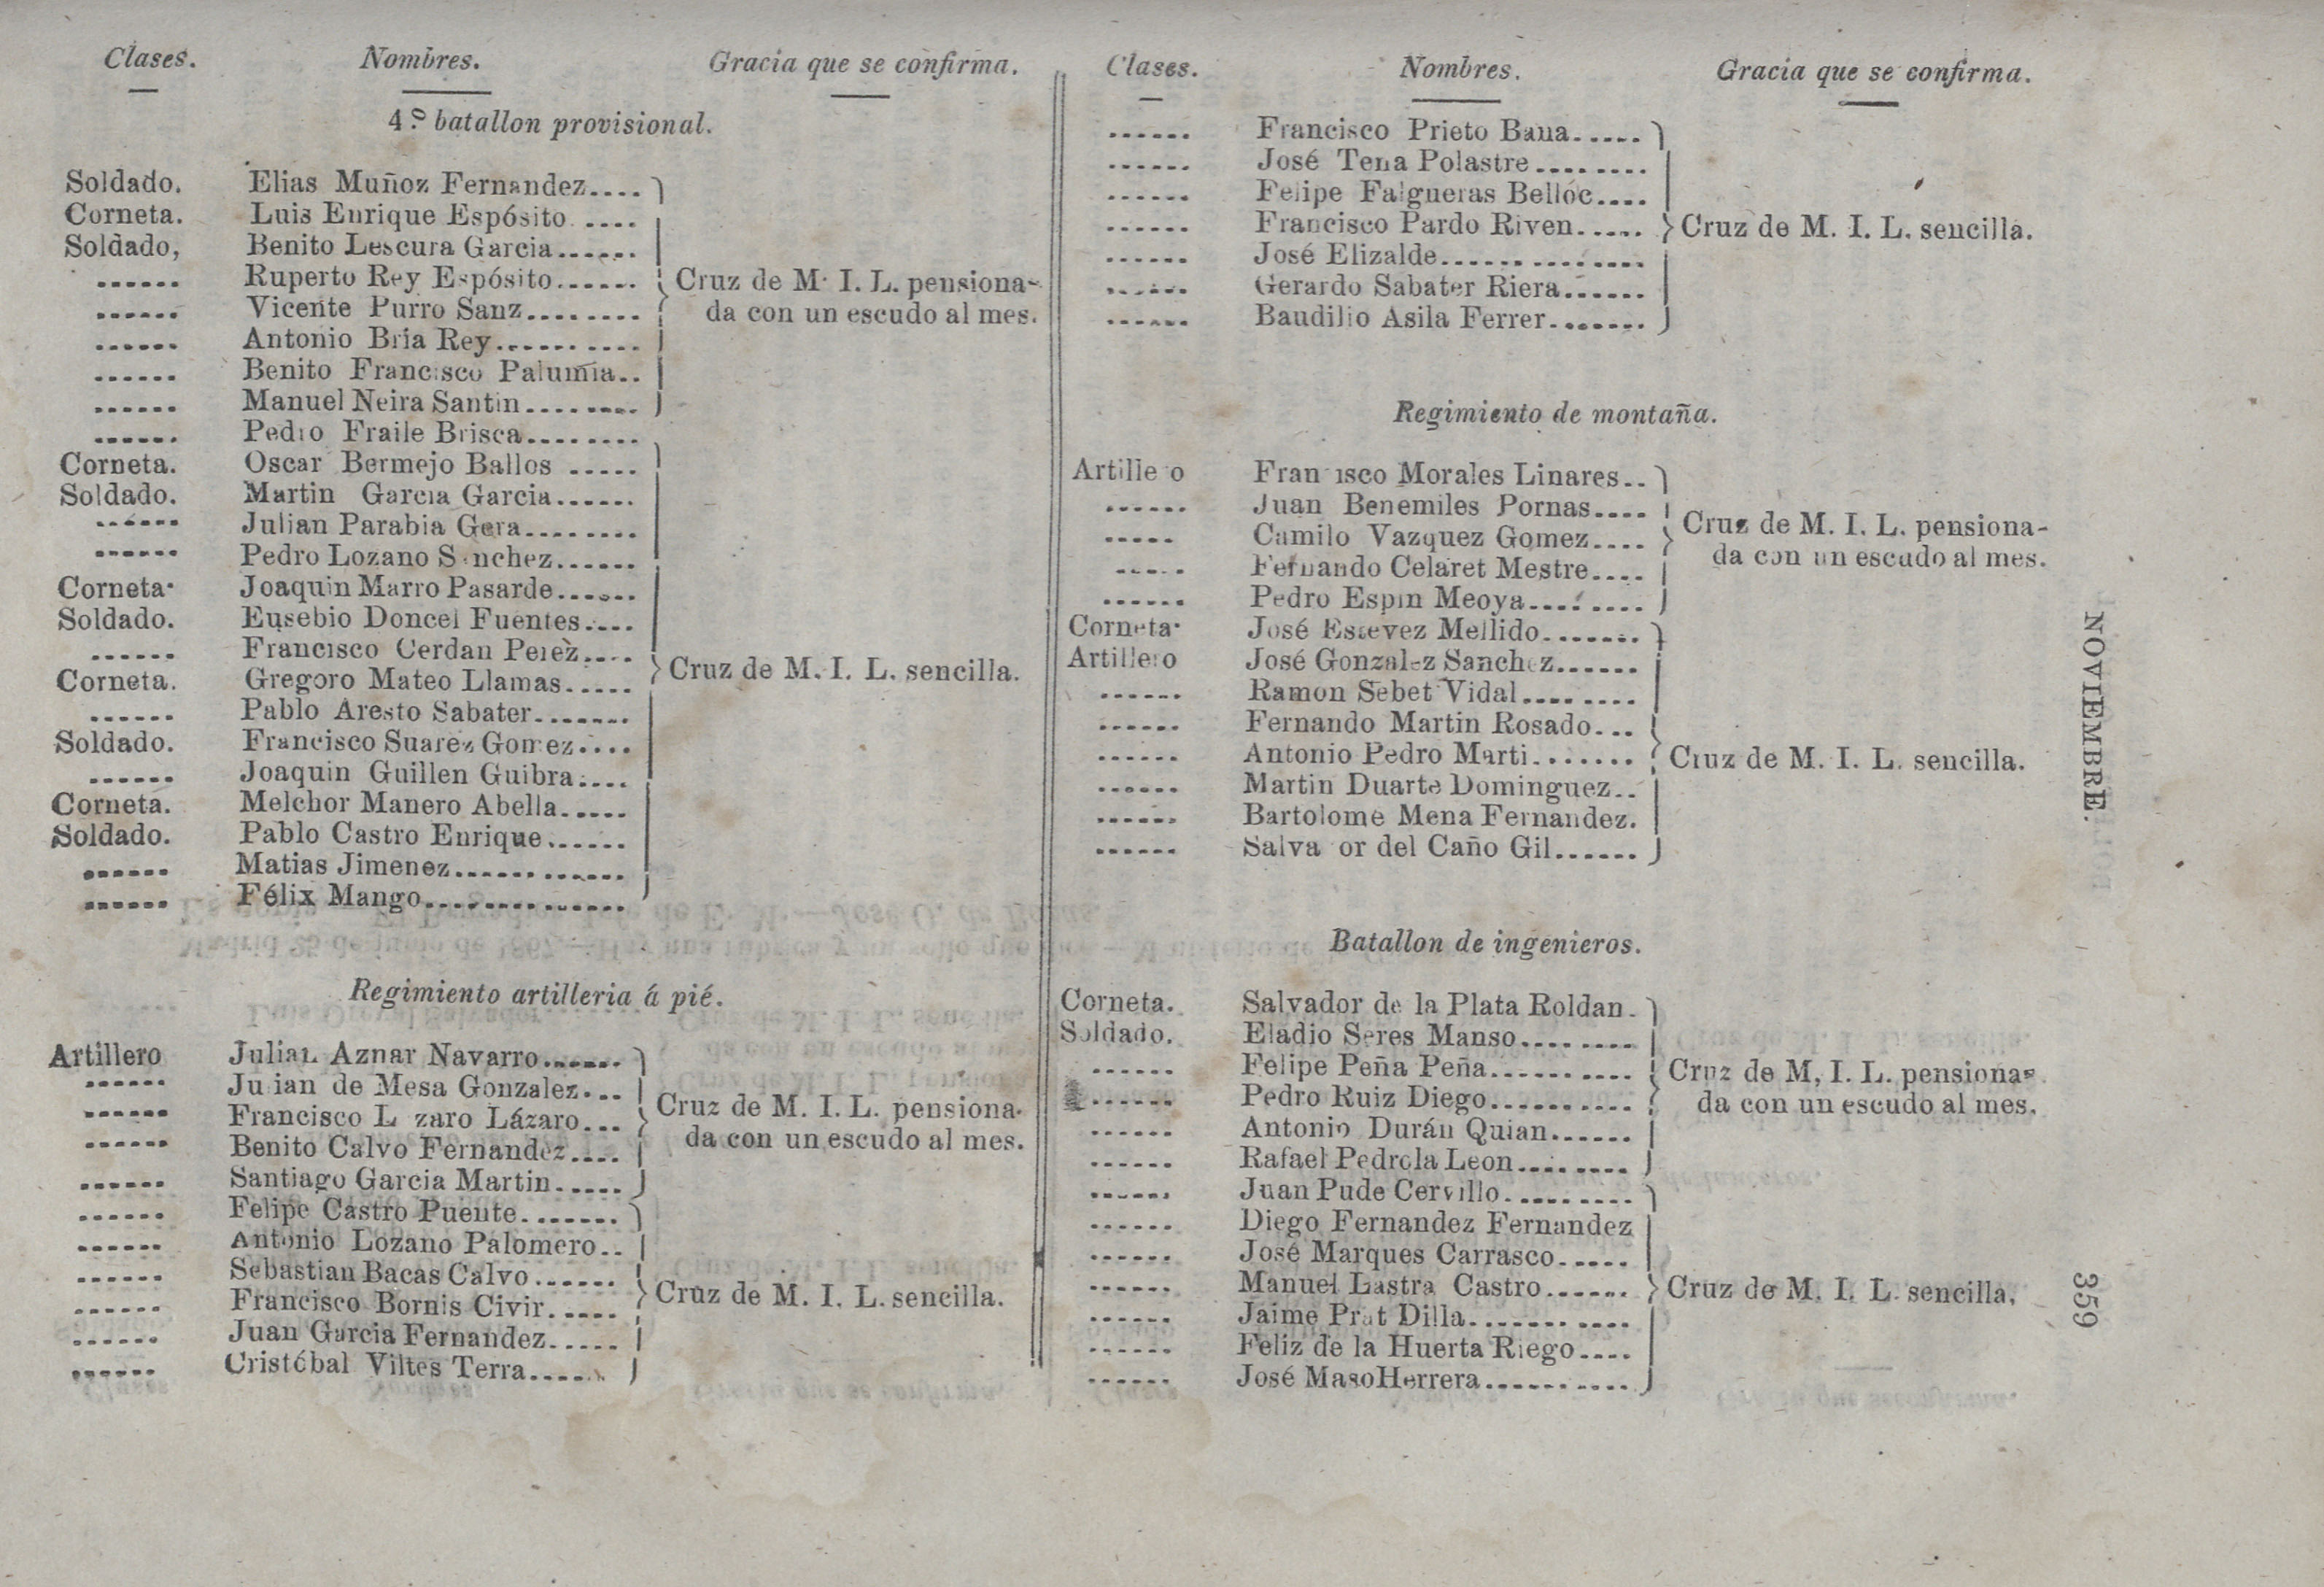 Clases. Nombres. Gracia que se confirma.
4.º batallon provisional.
Soldado. Elias Muñoz Fernandez....
Corneta. Luis Enrique Espósito ....
Soldado, Benito Lescura Garcia......
...... Ruperto Rey Espósito......
...... Vicente Purro Sanz........
...... Antonio Bria Rey..........
...... Benito Francisco Palumia..
...... Manuel Neira Santin........
Cruz de M. I. L. pensiona-
da con un escudo al mes.
...... Pedro Fraile Brisca........
Corneta. Oscar Bermejo Ballos .....
Soldado. Martin Garcia Garcia......
...... Julian Parabia Gera........
...... Pedro Lozano S nchez......
Corneta. Joaquin Marro Pasarde......
Soldado. Eusebio Doncel Fuentes....
...... Francisco Cerdan Perez....
Corneta. Gregoro Mateo Llamas.....
...... Pablo Aresto Sabater.......
Soldado. Francisco Suarez Gomez....
...... Joaquin Guillen Guibra....
Corneta. Melchor Manero Abella.....
Soldado. Pablo Castro Enrique......
...... Matias Jimenez.............
...... Félix Mango...............
Cruz de M. I. L. sencilla.
Regimiento artilleria á pié.
Artillero Julian Aznar Navarro......
...... Julian de Mesa Gonzalez...
...... Francisco L zaro Lázaro...
...... Benito Calvo Fernandez....
...... Santiago Garcia Martin.....
Cruz de M. I. L. pensiona-
da con un escudo al mes.
...... Felipe Castro Puente.......
...... Antonio Lozano Palomero..
...... Sebastian Bacas Calvo......
...... Francisco Bornis Civir.....
...... Juan Garcia Fernandez.....
...... Cristóbal Viltes Terra......
Cruz de M. I. L. sencilla.
Clases. Nombres. Gracia que se confirma.
...... Francisco Prieto Baua.....
...... José Tena Polastre........
...... Felipe Falgueras Bellóc....
...... Francisco Pardo Riven.....
...... José Elizalde..............
...... Gerardo Sabater Riera......
...... Baudilio Asila Ferrer.......
Cruz de M. I. L. sencilla.
Regimiento de montaña.
Artille o Fran isco Morales Linares..
...... Juan Benemiles Pornas....
..... Camilo Vazquez Gomez....
..... Fernando Celaret Mestre....
...... Pedro Espin Meoya........
Cruz de M. I. L. pensiona-
da con un escudo al mes.
Corneta. José Estevez Mellido.......
Artillero José Gonzalez Sanchez......
...... Ramon Sebet Vidal........
...... Fernando Martin Rosado...
...... Antonio Pedro Marti.......
...... Martin Duarte Dominguez..
...... Bartolome Mena Fernandez.
...... Salva or del Caño Gil......
Cruz de M. I. L. sencilla.
Batallon de ingenieros.
Corneta. Salvador de la Plata Roldan.
Soldado. Eladio Seres Manso........
...... Felipe Peña Peña..........
...... Pedro Ruiz Diego..........
...... Antonio Durán Quian......
...... Rafael Pedrola Leon........
Cruz de M, I. L. pensiona-
da con un escudo al mes.
...... Juan Pude Cervillo.........
...... Diego Fernandez Fernandez
...... José Marques Carrasco.....
...... Manuel Lastra Castro......
...... Jaime Prat Dilla............
...... Feliz de la Huerta Riego....
...... José Maso Herrera...........
Cruz de M. I. L. sencilla,
NOVIEMBRE.
359